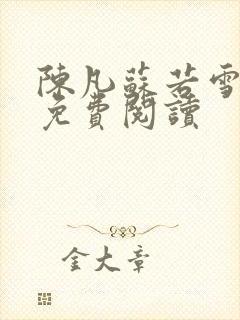 陳凡蘇若雪
免費閱讀
金大章